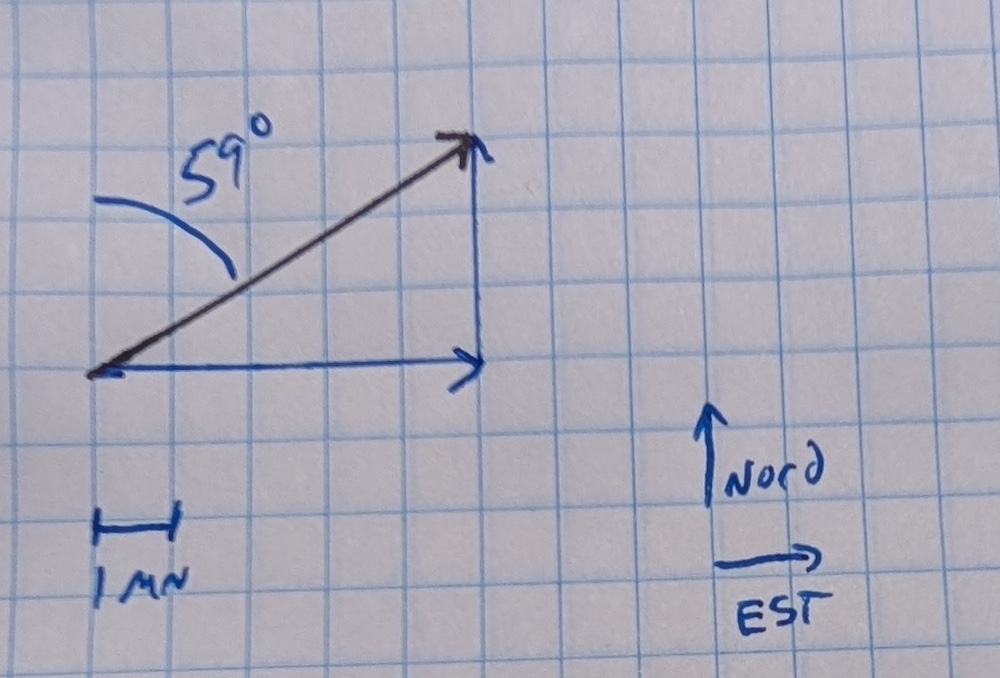 59°
Nord
1 MN
EST